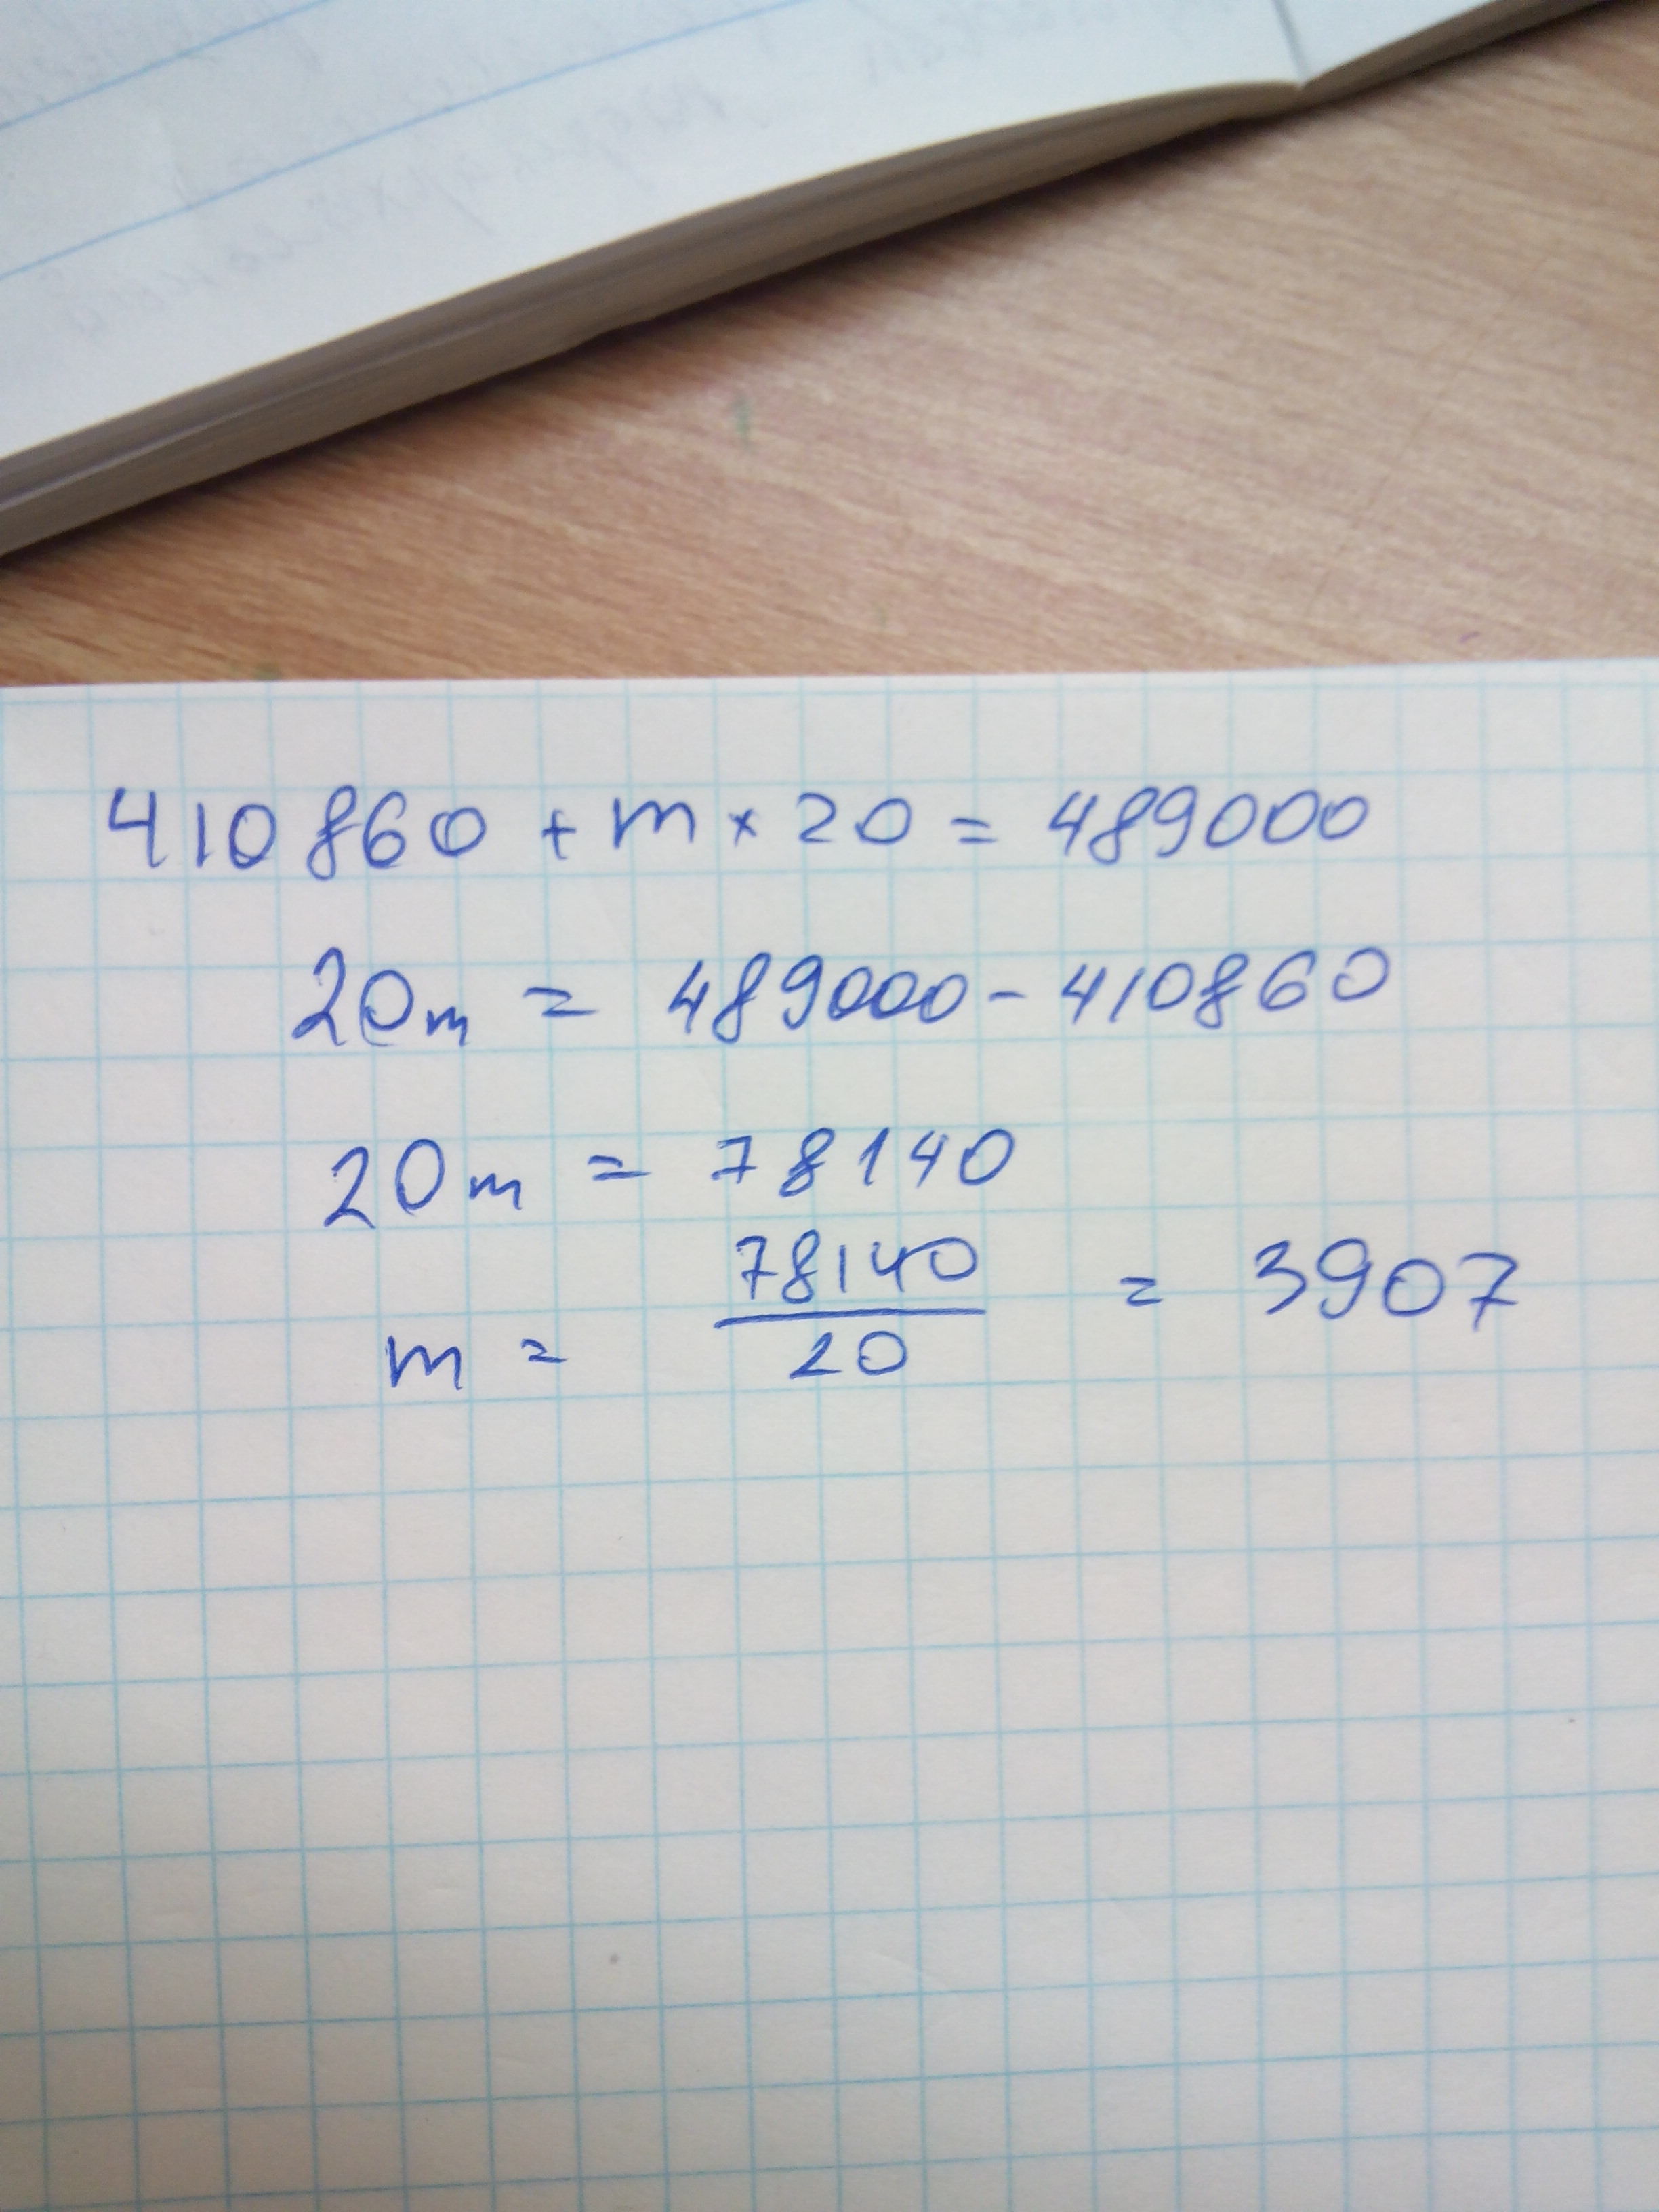 410860 + m × 20 = 489000
20m = 489000 - 410860
20m = 78140
m = 78140/20 = 3907